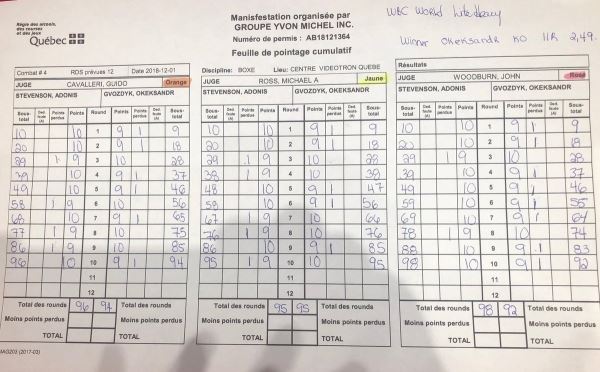 Régie des alcools,
des courses
et des jeux
Québec
Manisfestation organisée par
GROUPE YVON MICHEL INC.
Numéro de permis : AB18121364
Feuille de pointage cumulatif
WBC World Lite Heavy
Winner Okeksandr KO 11R 2,49.
Combat # 4 RDS prévues 12 Date 2018-12-01 Discipline: BOXE Lieu: CENTRE VIDEOTRON QUEBE Résultats
JUGE CAVALLERI, GUIDO Orange JUGE ROSS, MICHAEL A Jaune JUGE WOODBURN, JOHN Rose
STEVENSON, ADONIS GVOZDYK, OKEKSANDR STEVENSON, ADONIS GVOZDYK, OKEKSANDR STEVENSON, ADONIS GVOZDYK, OKEKSANDR
Sous-total Points perdus Points Round Points Points perdus Sous-total Sous-total Points perdus Points Round Points Points perdus Sous-total Sous-total Points perdus Points Round Points Points perdus Sous-total
10 10 1 9 1 9 10 10 1 9 1 9 10 10 1 9 1 9
20 10 2 9 1 18 20 10 2 9 1 18 20 10 2 9 1 18
29 1 9 3 10 28 29 1 9 3 10 28 29 1 9 3 10 28
39 10 4 9 1 37 38 1 9 4 10 38 39 10 4 9 1 37
49 10 5 9 1 46 48 10 5 9 1 47 49 10 5 9 1 46
58 1 9 6 10 56 58 10 6 9 1 56 59 10 6 9 1 55
68 10 7 9 1 65 67 1 9 7 10 66 69 10 7 9 1 64
77 1 9 8 10 75 76 1 9 8 10 76 78 1 9 8 10 74
86 1 9 9 10 85 86 10 9 9 1 85 88 10 9 9 1 83
96 10 10 9 1 94 95 1 9 10 10 95 98 10 10 9 1 92
11 11 11
12 12 12
Total des rounds 96 94 Total des rounds 95 95 Total des rounds 98 92
Moins points perdus Moins points perdus Moins points perdus
TOTAL TOTAL TOTAL
(2017-03)